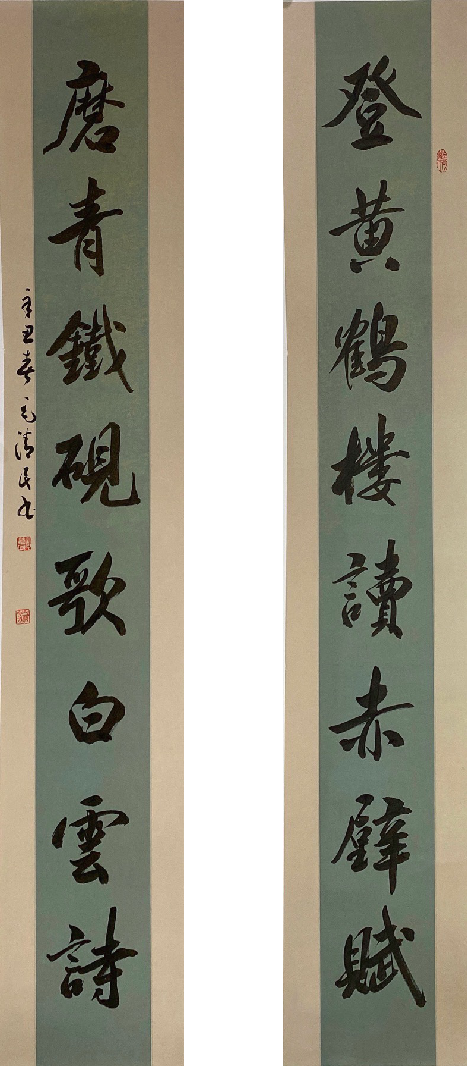 登黄鶴樓讀赤壁賦
磨青鐵硯歌白雲詩
辛丑春毛清民书